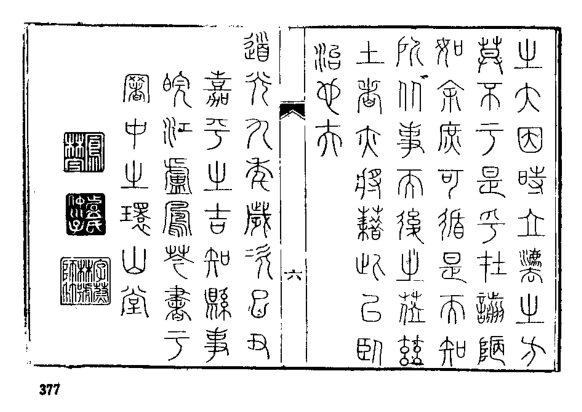 之大因時立灋之方
莫不于是乎在譾陋
如余庶可循是而知
所从事而後之蒞茲
土者亦將藉此㠯臥
治也亦
六
道光九年歲次己丑
嘉平之吉知縣事
皖江盧鳳書于
署中之環山堂
377